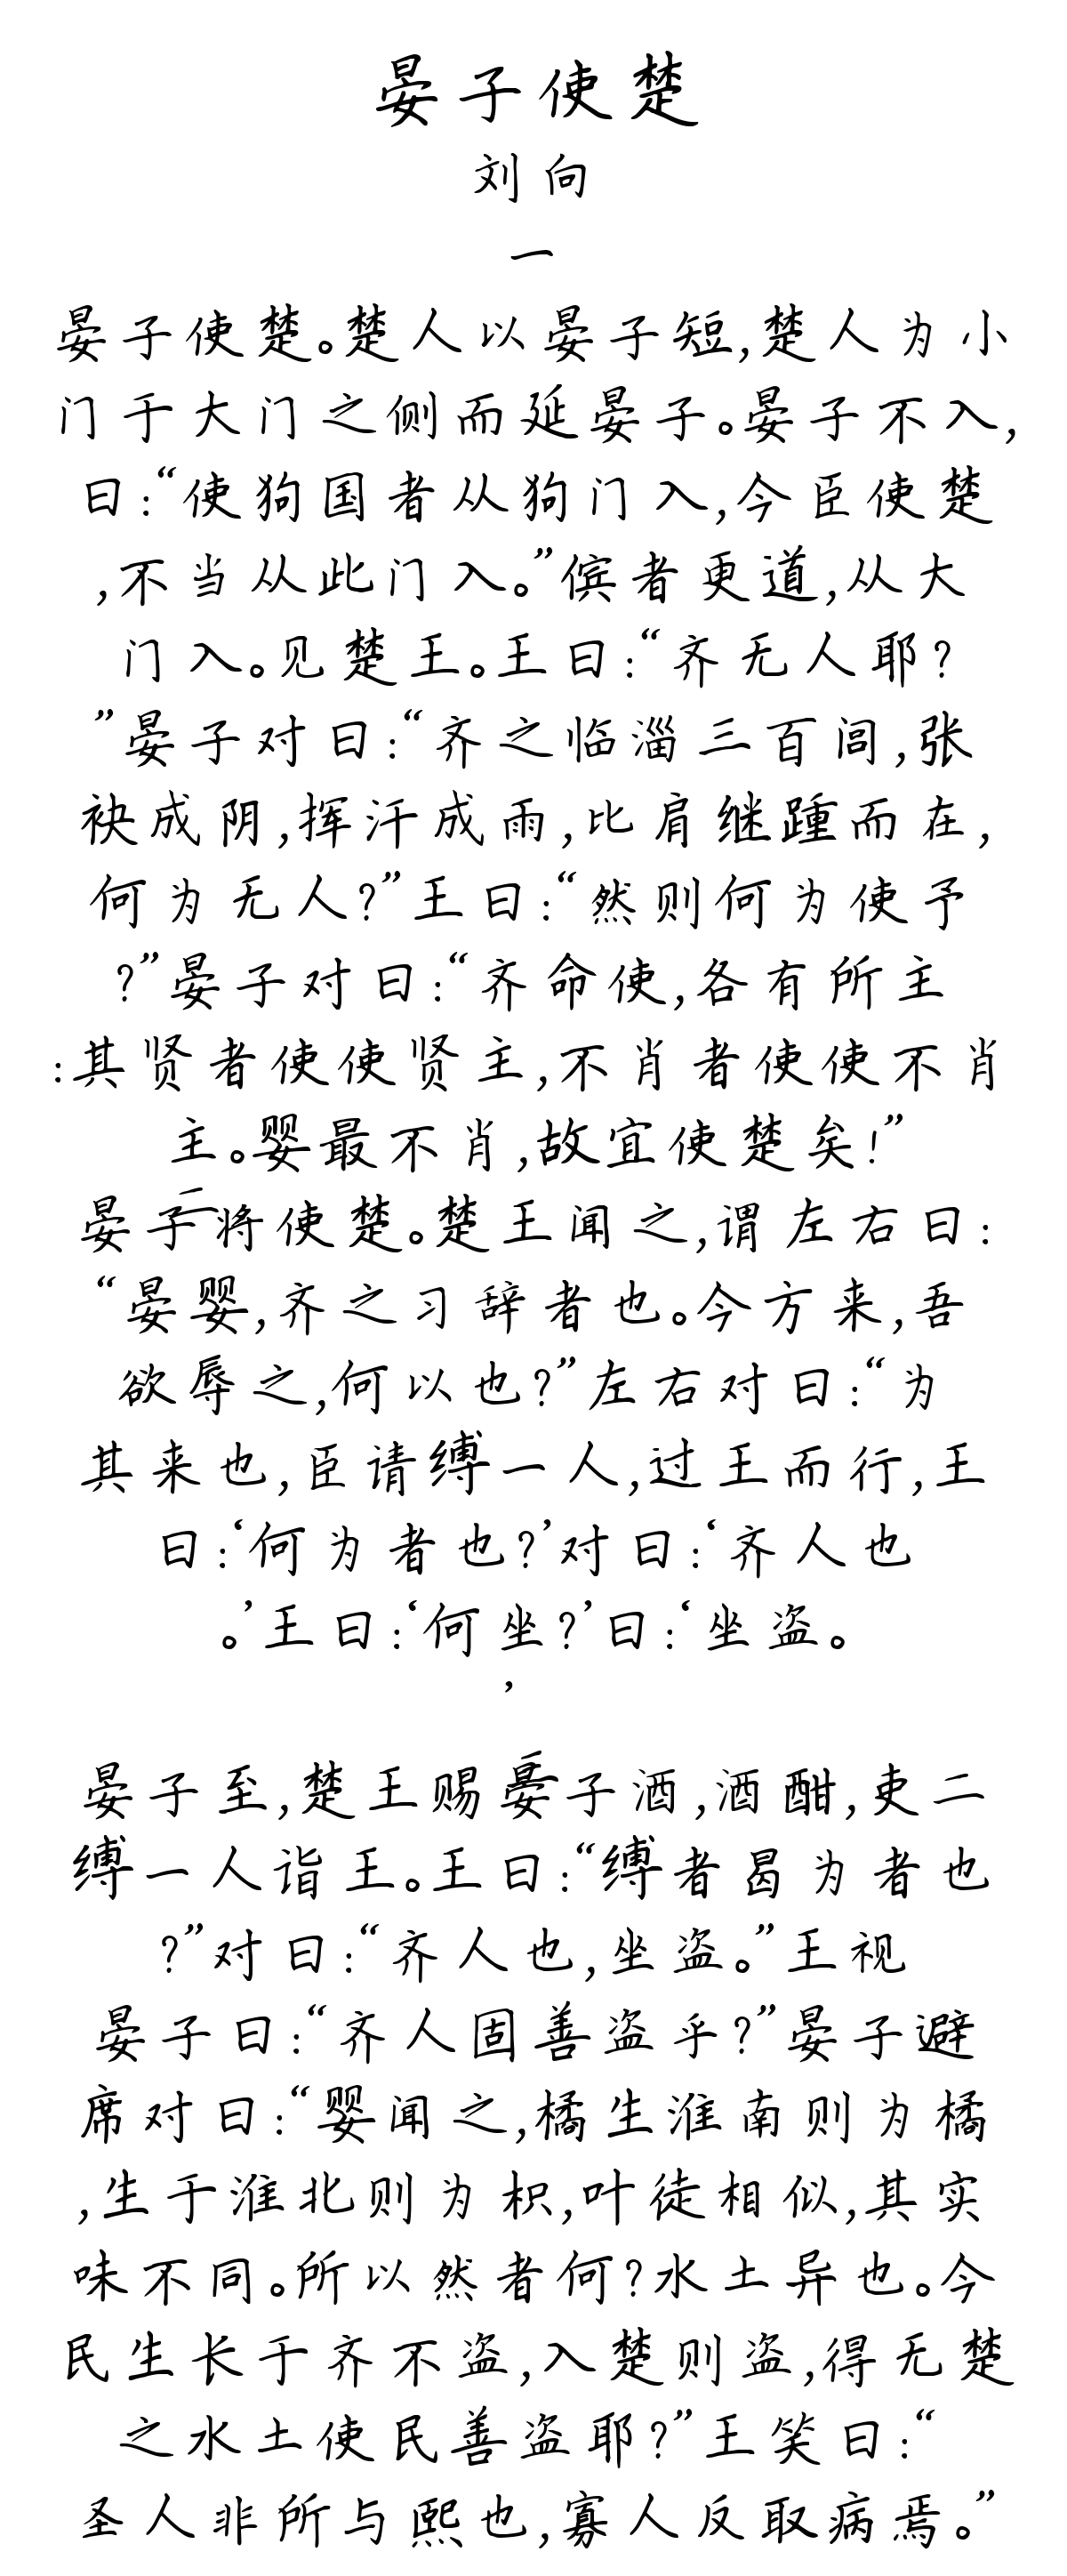 晏子使楚
刘向
一
晏子使楚。楚人以晏子短,楚人为小
门于大门之侧而延晏子。晏子不入,
曰:“使狗国者从狗门入,今臣使楚
,不当从此门入。”傧者更道,从大
门入。见楚王。王曰:“齐无人耶?
”晏子对曰:“齐之临淄三百闾,张
袂成阴,挥汗成雨,比肩继踵而在,
何为无人?”王曰:“然则何为使予
?”晏子对曰:“齐命使,各有所主
:其贤者使使贤主,不肖者使使不肖
主。婴最不肖,故宜使楚矣!”
二
晏子将使楚。楚王闻之,谓左右曰:
“晏婴,齐之习辞者也。今方来,吾
欲辱之,何以也?”左右对曰:“为
其来也,臣请缚一人,过王而行,王
曰:‘何为者也?’对曰:‘齐人也
。’王曰:‘何坐?’曰:‘坐盗。
’
三
晏子至,楚王赐晏子酒,酒酣,吏二
缚一人诣王。王曰:“缚者曷为者也
?”对曰:“齐人也,坐盗。”王视
晏子曰:“齐人固善盗乎?”晏子避
席对曰:“婴闻之,橘生淮南则为橘
,生于淮北则为枳,叶徒相似,其实
味不同。所以然者何?水土异也。今
民生长于齐不盗,入楚则盗,得无楚
之水土使民善盗耶?”王笑曰:“
圣人非所与熙也,寡人反取病焉。”